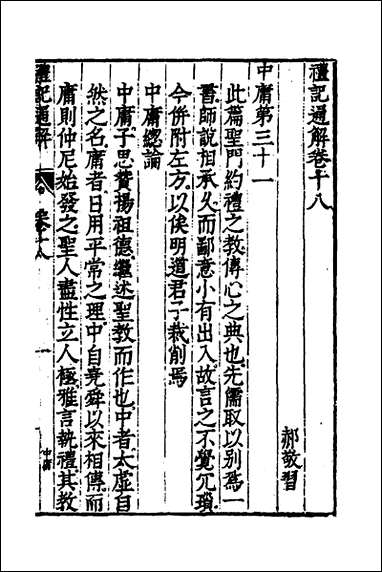 禮記通解卷十八
郝敬習
中庸第三十一
此篇聖門約禮之教傳心之典也先儒取以別爲一
書師說相承久而鄙意小有出入故言之不覺冗瑣
今併附左方以俟明道君子裁削焉
中庸總論
中庸子思贊揚祖德繼述聖教而作也中者太虛自
然之名庸者日用平常之理中自堯舜以來相傳而
庸則仲尼始發之聖人盡性立人極雅言執禮其教
禮記通解
卷十八
一
中庸